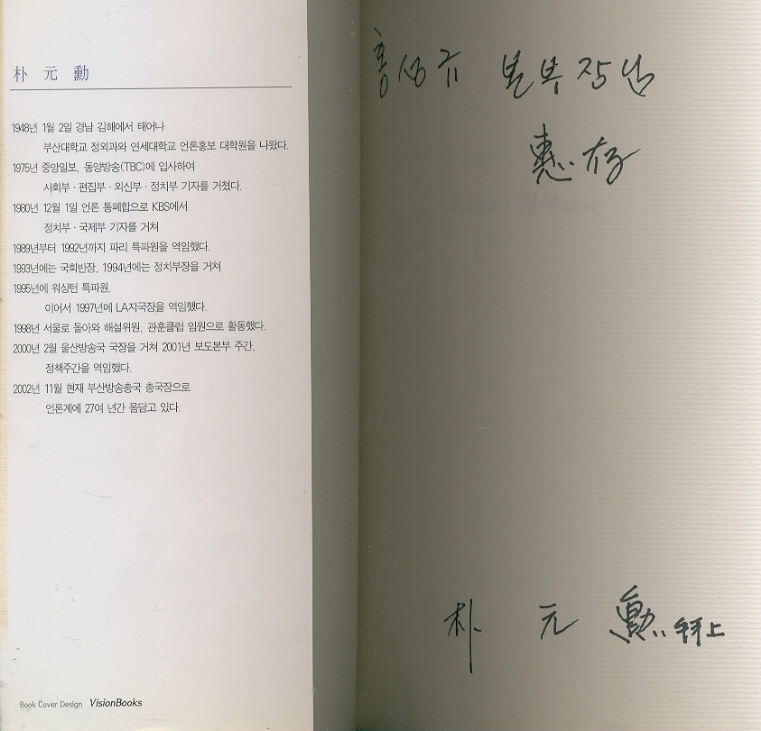 朴 元 勳
1948년 1월 2일 경남 김해에서 태어나
부산대학교 정외과와 연세대학교 언론홍보 대학원을 나왔다.
1975년 중앙일보, 동양방송(TBC)에 입사하여
사회부·편집부·외신부·정치부 기자를 거쳤다.
1980년 12월 1일 언론 통폐합으로 KBS에서
정치부·국제부 기자를 거쳐
1989년부터 1992년까지 파리 특파원을 역임했다.
1993년에는 국회반장, 1994년에는 정치부장을 거쳐
1995년에 워싱턴 특파원,
이어서 1997년에 LA지국장을 역임했다.
1998년 서울로 돌아와 해설위원, 관훈클럽 임원으로 활동했다.
2000년 2월 울산방송국 국장을 거쳐 2001년 보도본부 주간,
정책주간을 역임했다.
2002년 11월 현재 부산방송총국 총국장으로
언론계에 27여 년간 몸담고 있다.
Book Cover Design VisionBooks
홍성규 본부장님
惠存
朴 元 勳 拜上